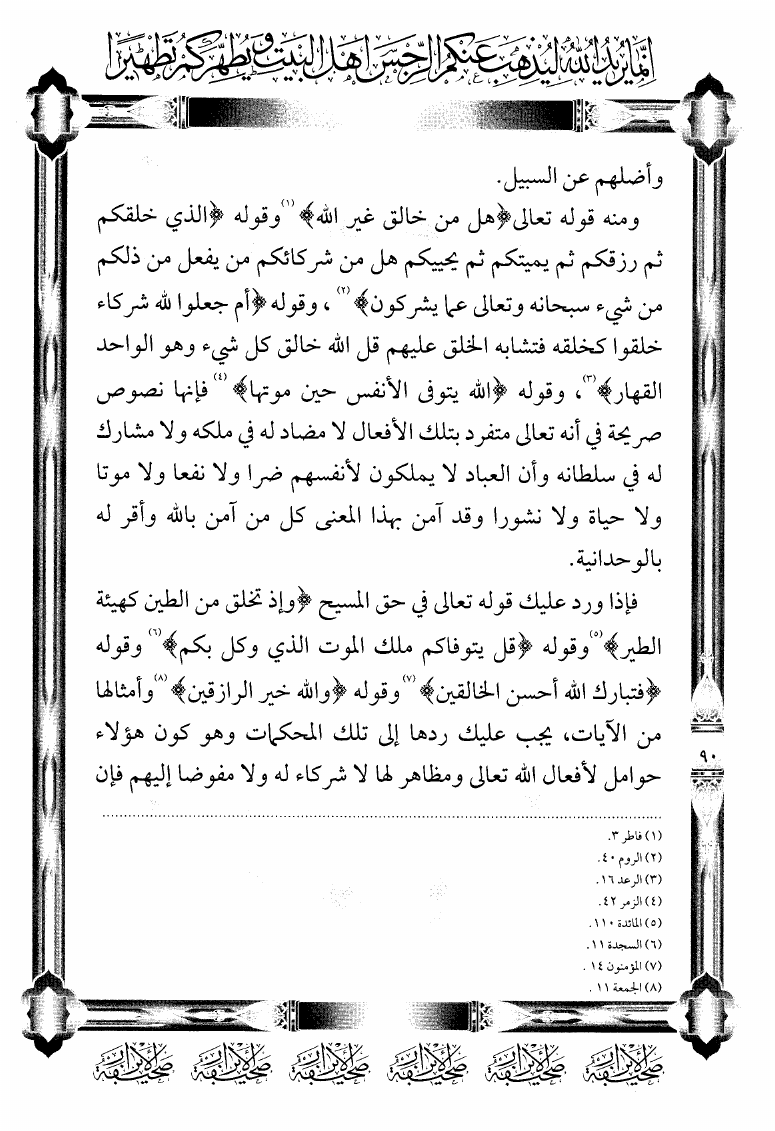 إنما يريد الله ليذهب عنكم الرجس اهل البيت ويطهركم تطهيرا
وأضلهم عن السبيل.
ومنه قوله تعالى ﴿هل من خالق غير الله﴾(١) وقوله ﴿الذي خلقكم
ثم رزقكم ثم يميتكم ثم يحييكم هل من شركائكم من يفعل من ذلكم
من شيء سبحانه وتعالى عما يشركون﴾(٢) ، وقوله ﴿أم جعلوا لله شركاء
خلقوا كخلقه فتشابه الخلق عليهم قل الله خالق كل شيء وهو الواحد
القهار﴾(٣)، وقوله ﴿الله يتوفى الأنفس حين موتها﴾(٤) فإنها نصوص
صريحة في أنه تعالى متفرد بتلك الأفعال لا مضاد له في ملكه ولا مشارك
له في سلطانه وأن العباد لا يملكون لأنفسهم ضرا ولا نفعا ولا موتا
ولا حياة ولا نشورا وقد آمن بهذا المعنى كل من آمن بالله وأقر له
بالوحدانية.
فإذا ورد عليك قوله تعالى في حق المسيح ﴿وإذ تخلق من الطين كهيئة
الطير﴾(٥) وقوله ﴿قل يتوفاكم ملك الموت الذي وكل بكم﴾(٦) وقوله
﴿فتبارك الله أحسن الخالقين﴾(٧) وقوله ﴿والله خير الرازقين﴾(٨) وأمثالها
من الآيات، يجب عليك ردها إلى تلك المحكمات وهو كون هؤلاء
حوامل لأفعال الله تعالى ومظاهر لها لا شركاء له ولا مفوضا إليهم فإن
٩٠
(١) فاطر ٣.
(٢) الروم ٤٠.
(٣) الرعد ١٦.
(٤) الزمر ٤٢.
(٥) المائدة ١١٠.
(٦) السجدة ١١.
(٧) المؤمنون ١٤ .
(٨) الجمعة ١١ .